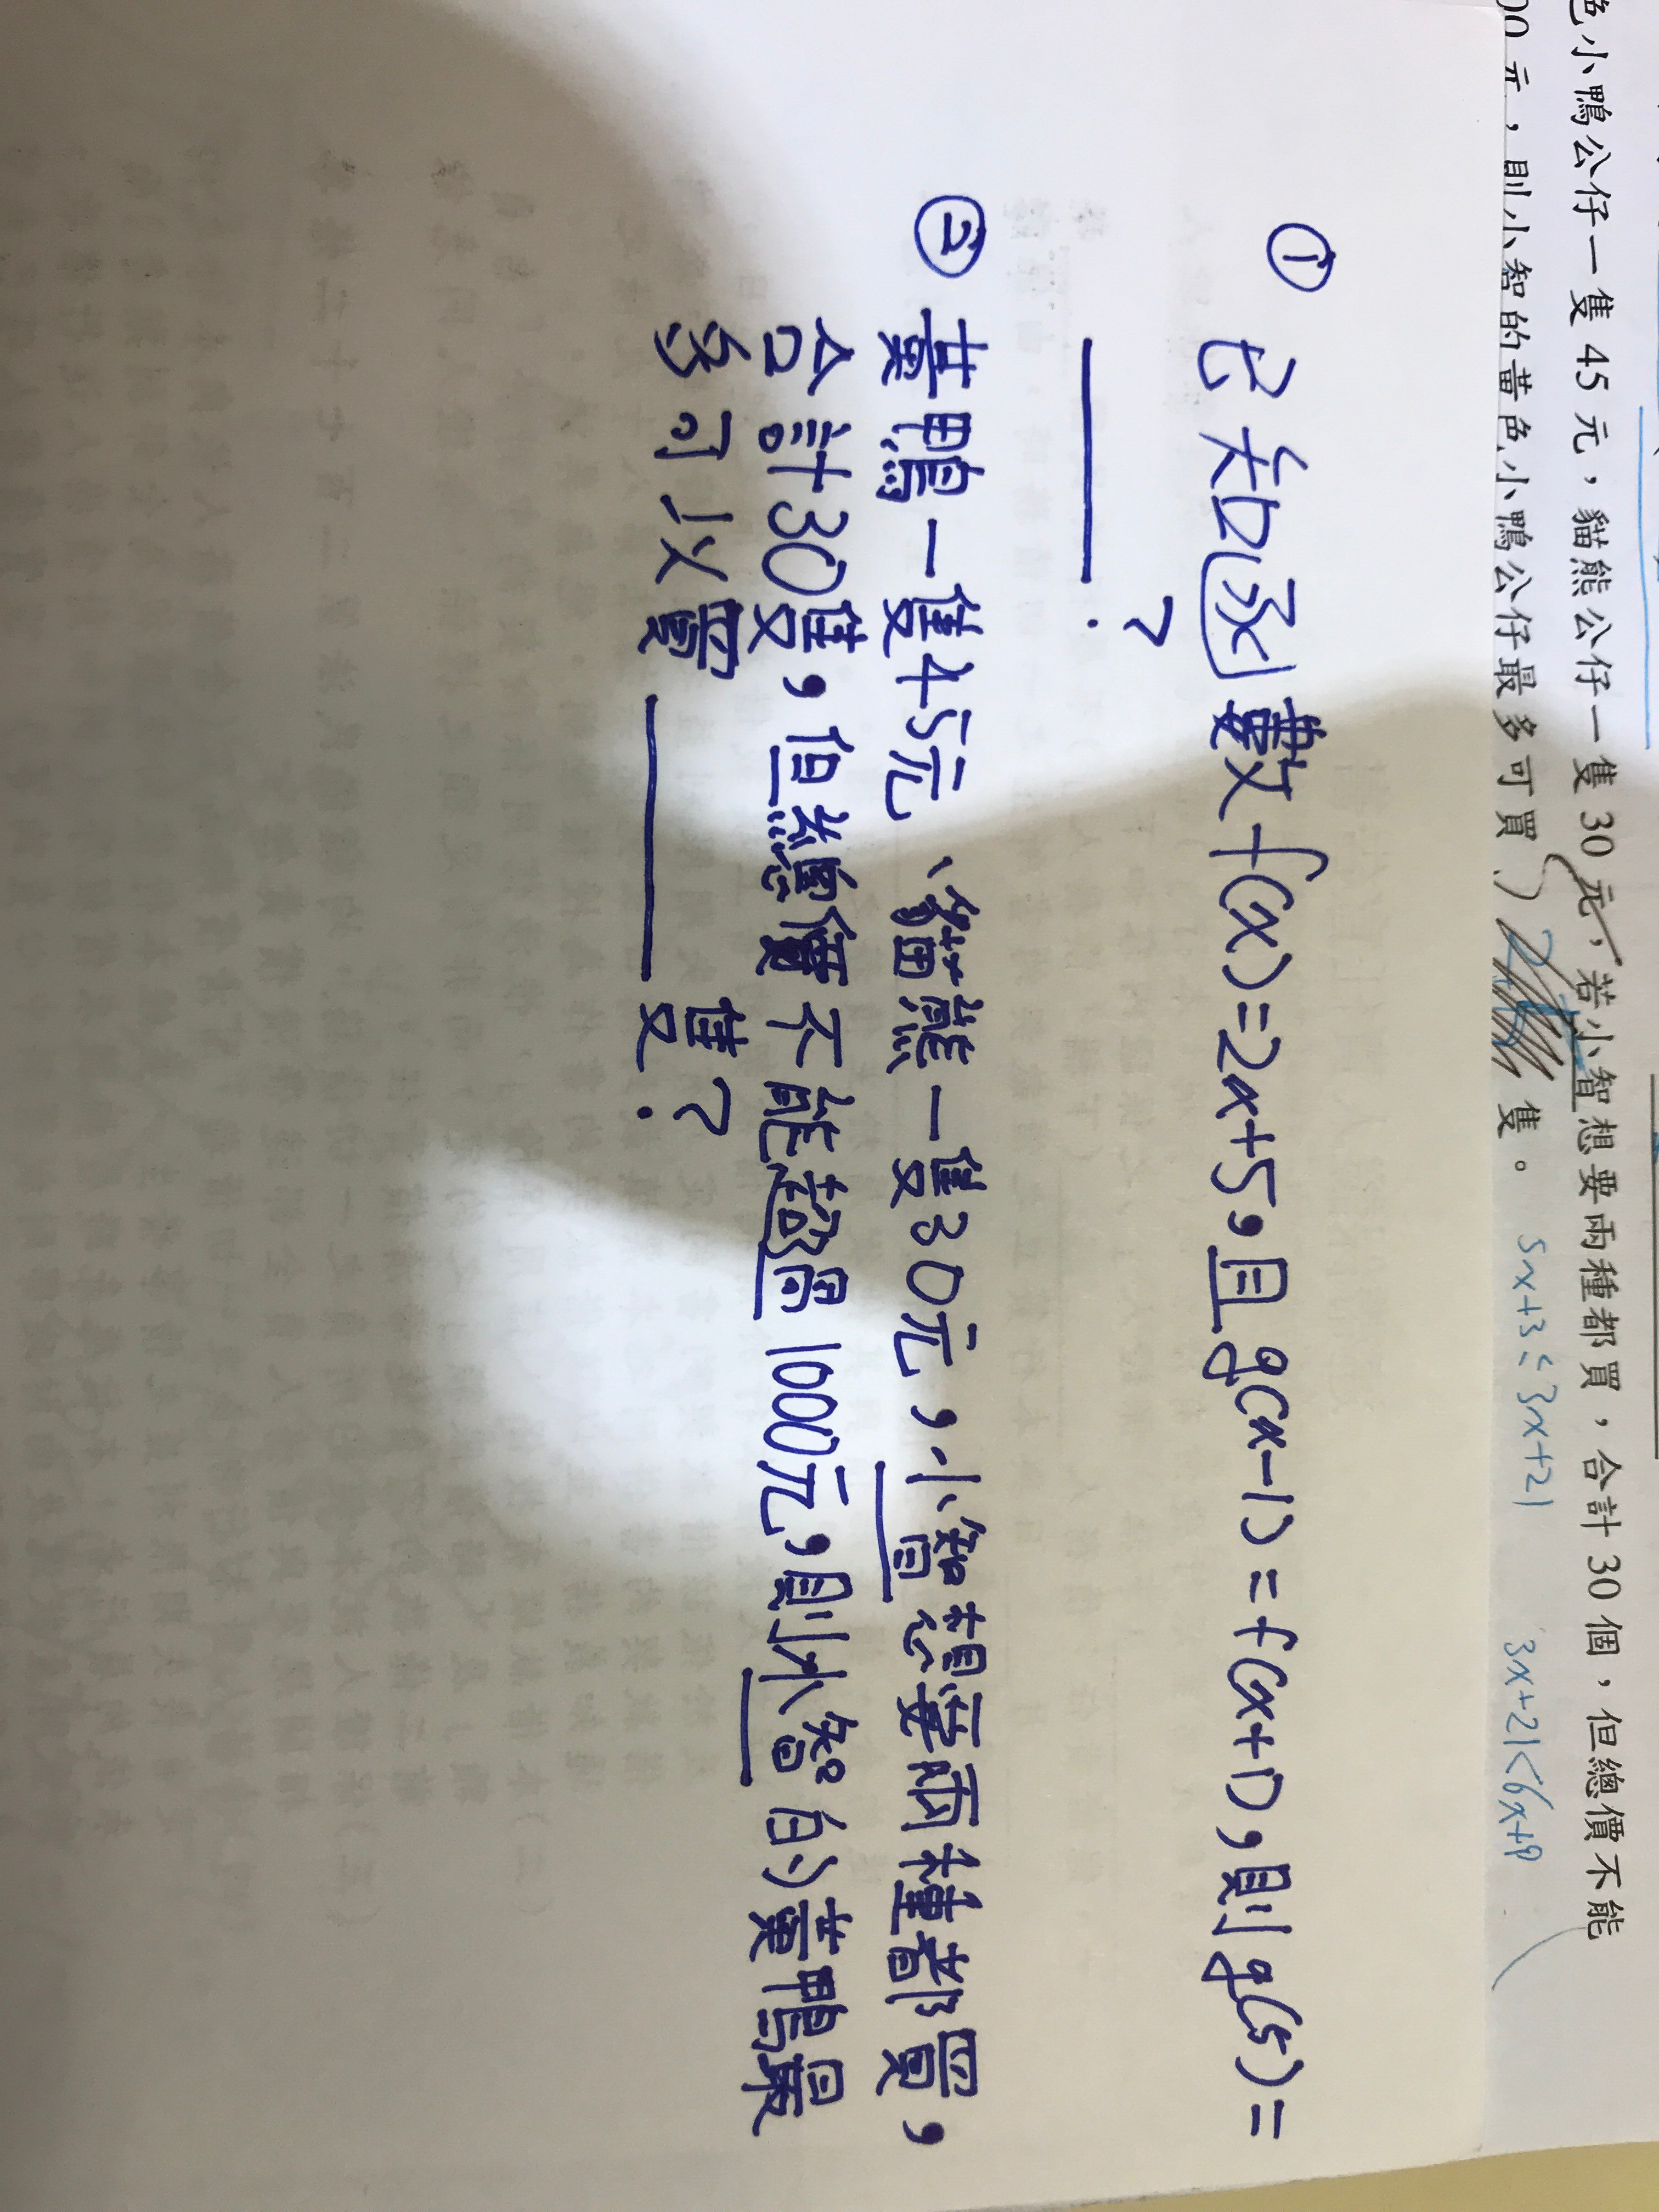 色小鴨公仔一隻 45 元，貓熊公仔一隻 30 元，若小智想要兩種都買，合計 30 個，但總價不能
00 元，則小智的黃色小鴨公仔最多可買 隻。
5x+3≤3x+21 3x+21<6x+9
① 已知函數f(x)=2x+5，且g(x-1)=f(x+1)，則g(5)=
？
② 黃鴨一隻45元、貓熊一隻30元，小智想要兩種都買，
合計30隻，但總價不能超過1000元，則小智的黃鴨最
多可以買 隻？